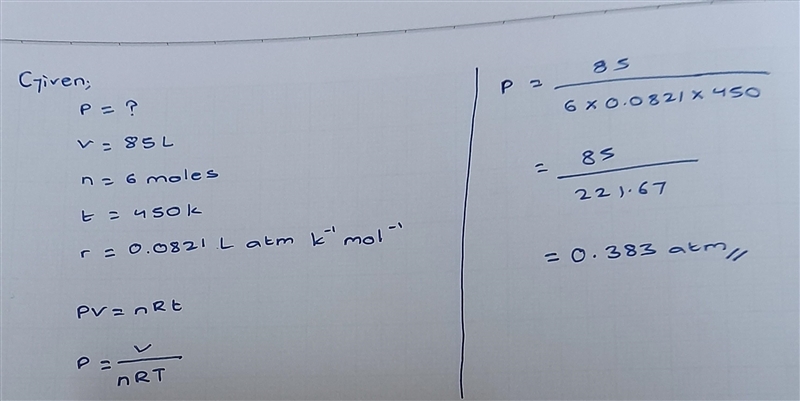 Given;
P = ?
V = 85L
n = 6 moles
t = 450k
r = 0.0821 L atm k⁻¹ mol⁻¹
PV = nRt
P = V / nRT
P = 85 / 6 × 0.0821 × 450
= 85 / 221.67
= 0.383 atm //